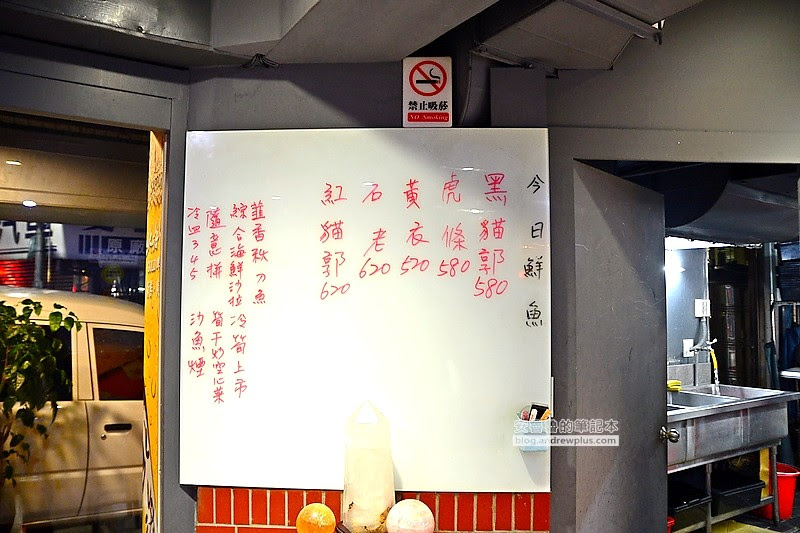 禁止吸菸
NO Smoking
今日鮮魚
黑貓郭580
虎條580
黃衣520
石老620
紅貓郭620
韮香秋刀魚
綜合海鮮沙拉 冷筍上市
隨意拼 筍干炒空心菜
冷皿345 沙魚煙
原廠
安當魯的筆記本
blog.andrewplus.com